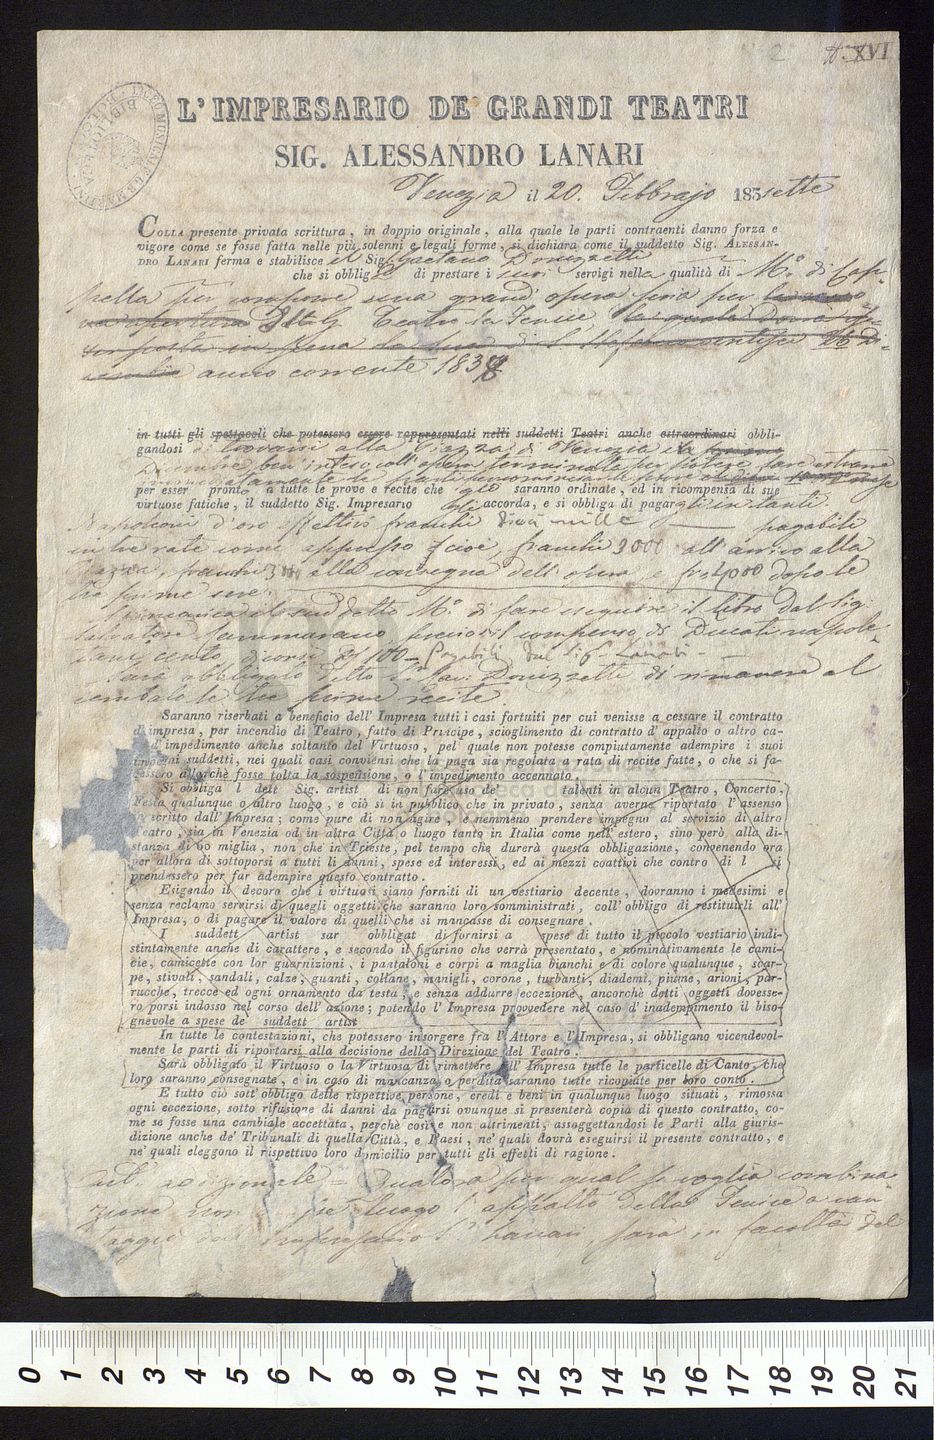 2 XVI
L'IMPRESARIO DE' GRANDI TEATRI
SIG. ALESSANDRO LANARI
Venezia il 20. Febbrajo 183sette
COLLA presente privata scrittura, in doppio originale, alla quale le parti contraenti danno forza e
vigore come se fosse fatta nelle più solenni e legali forme, si dichiara come il suddetto Sig. ALESSAN-
DRO LANARI ferma e stabilisce il Sig. Gaetano Donizzetti
che si obbliga di prestare i suoi servigi nella qualità di M.o di Cap-
pella per comporre una grand' opera seria per
Il G. Teatro La Fenice, la quale dovrà es-
ser posta in scena la sera di S. Stefano ventisei Di-
cembre anno corrente 1838
in tutti gli spettacoli che potessero essere rappresentati nelli suddetti Teatri anche estraordinari obbli-
gandosi di trovarsi alla Piazza di Venezia
Dicembre ben inteso coll' opera terminata per potere fare estrarre
immediatamente le parti
per esser pronto a tutte le prove e recite che gli saranno ordinate, ed in ricompensa di sue
virtuose fatiche, il suddetto Sig. Impresario gli accorda, e si obbliga di pagargli in tanti
Napoleoni d'oro effettivi franchi Dieci mille — pagabili
in tre rate come appresso cioè, franchi 3000 all' arrivo alla
Piazza, franchi 3000 alla consegna dell' opera, e fr. 4000 dopo le
tre prime sere.
S'incarica il suddetto M.o di fare eseguire il libro dal Sig.
Salvatore Cammarano, pel compenso di Ducati napole-
tani cento dicorsi 100 — Pagabili dal Sig. Lanari —
Sarà obbligato detto Sig. Donizzetti di rimanere al
cembalo le tre prime recite
Saranno riserbati a beneficio dell' Impresa tutti i casi fortuiti per cui venisse a cessare il contratto
d'impresa, per incendio di Teatro, fatto di Principe, scioglimento di contratto d'appalto o altro ca-
d'impedimento anche soltanto del Virtuoso, pel quale non potesse compiutamente adempire i suoi
impegni suddetti, nei quali casi conviensi che la paga sia regolata a rata di recite fatte, o che si fa-
cessero allorchè fosse tolta la sospensione, o l'impedimento accennato.
Si obbliga l dett Sig. artist di non fare uso de' talenti in alcun Teatro, Concerto,
Festa qualunque o altro luogo, e ciò sì in pubblico che in privato, senza averne riportato l'assenso
in scritto dall' Impresa; come pure di non agire, e nemmeno prendere impegno al servizio di altro
Teatro, sia in Venezia od in altra Città o luogo tanto in Italia come nell' estero, sino però alla di-
stanza di 60 miglia, non che in Trieste, pel tempo che durerà questa obbligazione, convenendo ora
per allora di sottoporsi a tutti li danni, spese ed interessi, ed ai mezzi coattivi che contro di l si
prendessero per far adempire questo contratto.
Esigendo il decoro che i virtuosi siano forniti di un vestiario decente, dovranno i medesimi e
senza reclamo servirsi di quegli oggetti che saranno loro somministrati, coll' obbligo di restituirli all'
Impresa, o di pagare il valore di quelli che si mancasse di consegnare.
I suddett artist sar obbligat di fornirsi a spese di tutto il piccolo vestiario indi-
stintamente anche di carattere, e secondo il figurino che verrà presentato, e nominativamente le cami-
cie, camicette con lor guarnizioni, i pantaloni e corpi a maglia bianchi e di colore qualunque, scar-
pe, stivali, sandali, calze, guanti, collane, manigli, corone, turbanti, diademi, piume, arioni, par-
rucche, trecce ed ogni ornamento da testa, e senza addurre eccezione, ancorchè detti oggetti dovesse-
ro porsi indosso nel corso dell' azione; potendo l' Impresa provvedere nel caso d'inadempimento il biso-
gnevole a spese de' suddett artist
In tutte le contestazioni, che potessero insorgere fra l'Attore e l'Impresa, si obbligano vicendevol-
mente le parti di riportarsi alla decisione della Direzione del Teatro.
Sarà obbligato il Virtuoso o la Virtuosa di rimettere all' Impresa tutte le particelle di Canto, che
loro saranno consegnate, e in caso di mancanza o perdita saranno tutte ricopiate per loro conto.
E tutto ciò sott' obbligo delle rispettive persone, eredi e beni in qualunque luogo situati, rimossa
ogni eccezione, sotto rifusione di danni da pagarsi ovunque si presenterà copia di questo contratto, co-
me se fosse una cambiale accettata, perchè così e non altrimenti, assoggettandosi le Parti alla giuris-
dizione anche de' Tribunali di quella Città, e Paesi, ne' quali dovrà eseguirsi il presente contratto, e
ne' quali eleggono il rispettivo loro domicilio per tutti gli effetti di ragione.
adizionale = Qualora per qual si voglia combina
zione non luogo l'appalto della Fenice a van-
taggio dell' Impresario Lanari, sarà in facoltà del
0 1 2 3 4 5 6 7 8 9 10 11 12 13 14 15 16 17 18 19 20 21